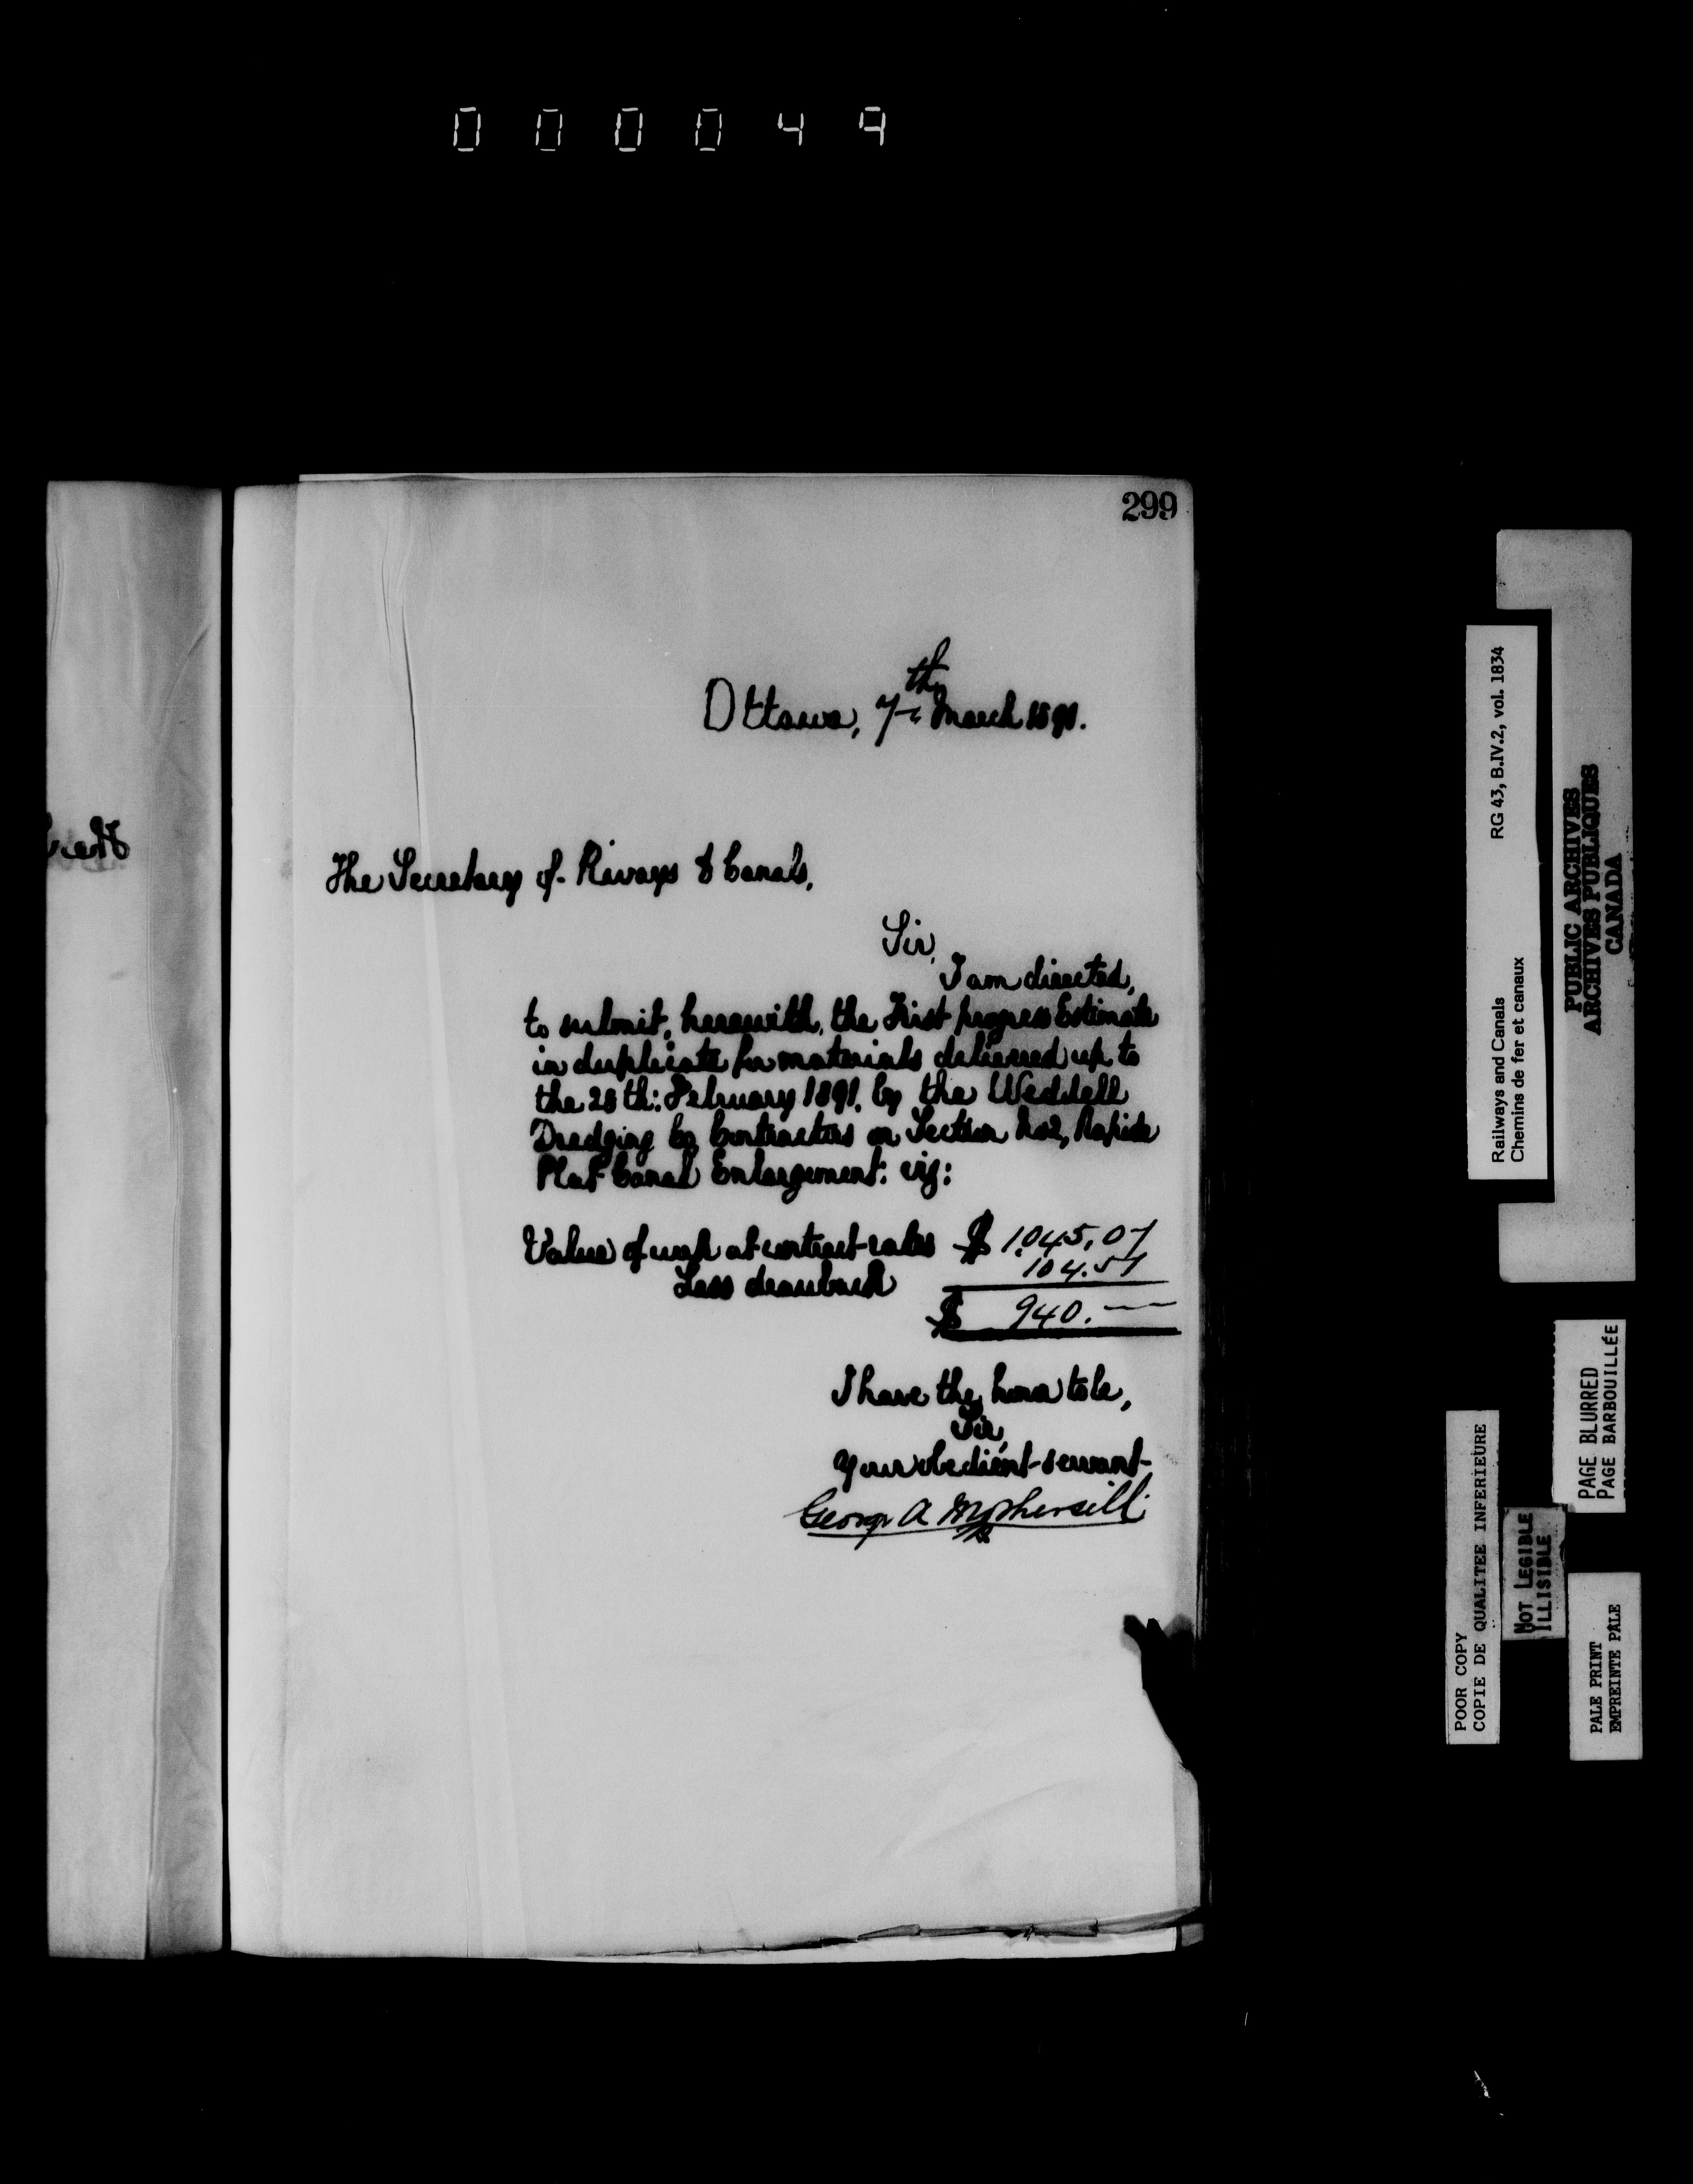 000049
299
Ottawa, 7th March 1891.
The Secretary of Riways & Canals,
Sir,
I am directed,
to submit, herewith, the First progress Estimate
in duplicate for materials delivered up to
the 28th: February 1891, by the Weddell
Dredging Co Contractors on Section No2, Rapide
Plat Canal Enlargement: viz:
Value of work at contract rates $ 1,045,07
Less drawback 104.51
$ 940.—
I have the honor to be,
Sir,
Your obedient servant
George A Mothersill
Railways and Canals RG 43, B.IV.2, vol. 1834
Chemins de fer et canaux
PUBLIC ARCHIVES
ARCHIVES PUBLIQUES
CANADA
PAGE BLURRED
PAGE BARBOUILLÉE
POOR COPY
COPIE DE QUALITEE INFERIEURE
NOT LEGIBLE
ILLISIBLE
PALE PRINT
EMPREINTE PÂLE